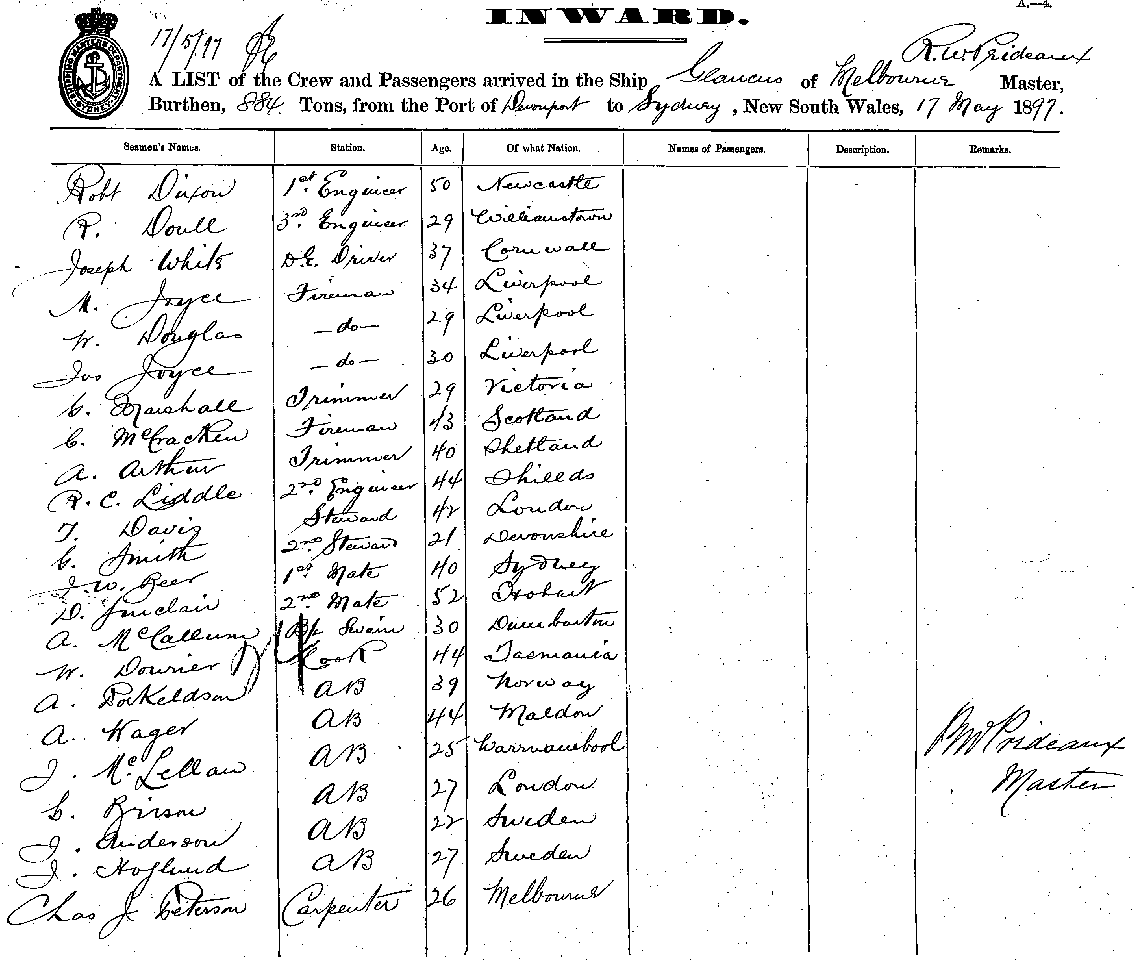 A.—4.
INWARD.
17/5/97
R. W. Prideaux
A LIST of the Crew and Passengers arrived in the Ship Glaucus of Melbourne Master,
Burthen, 884 Tons, from the Port of Devonport to Sydney, New South Wales, 17 May 1897.
Seamen's Names. Station. Age. Of what Nation. Names of Passengers. Description. Remarks.
Robt Dixon 1st Engineer 50 Newcastle
R. Doull 3rd Engineer 29 Williamstown
Joseph White Driver 37 Cornwall
M. Joyce Fireman 34 Liverpool
W. Douglas —do— 29 Liverpool
Jos Joyce —do— 30 Liverpool
C. Marshall Trimmer 29 Victoria
C. McCracken Fireman 43 Scotland
A. Arthur Trimmer 40 Shetland
R. C. Liddle 2nd Engineer 44 Shields
T. Davis Steward 42 London
C. Smith 2nd Steward 21 Devonshire
J. W. Beer 1st Mate 40 Sydney
D. Sinclair 2nd Mate 52 Hobart
A. McCallum Swain 30 Dumbarton
W. Dourier Cook 44 Tasmania
A. Torkeldson AB 39 Norway
A. Hager AB 44 Maldon
J. McLellan AB 25 Warrnambool
C. Brison AB 27 London
J. Anderson AB 22 Sweden
J. Hoglund AB 27 Sweden
Chas J. Peterson Carpenter 26 Melbourne
R W Prideaux
Master